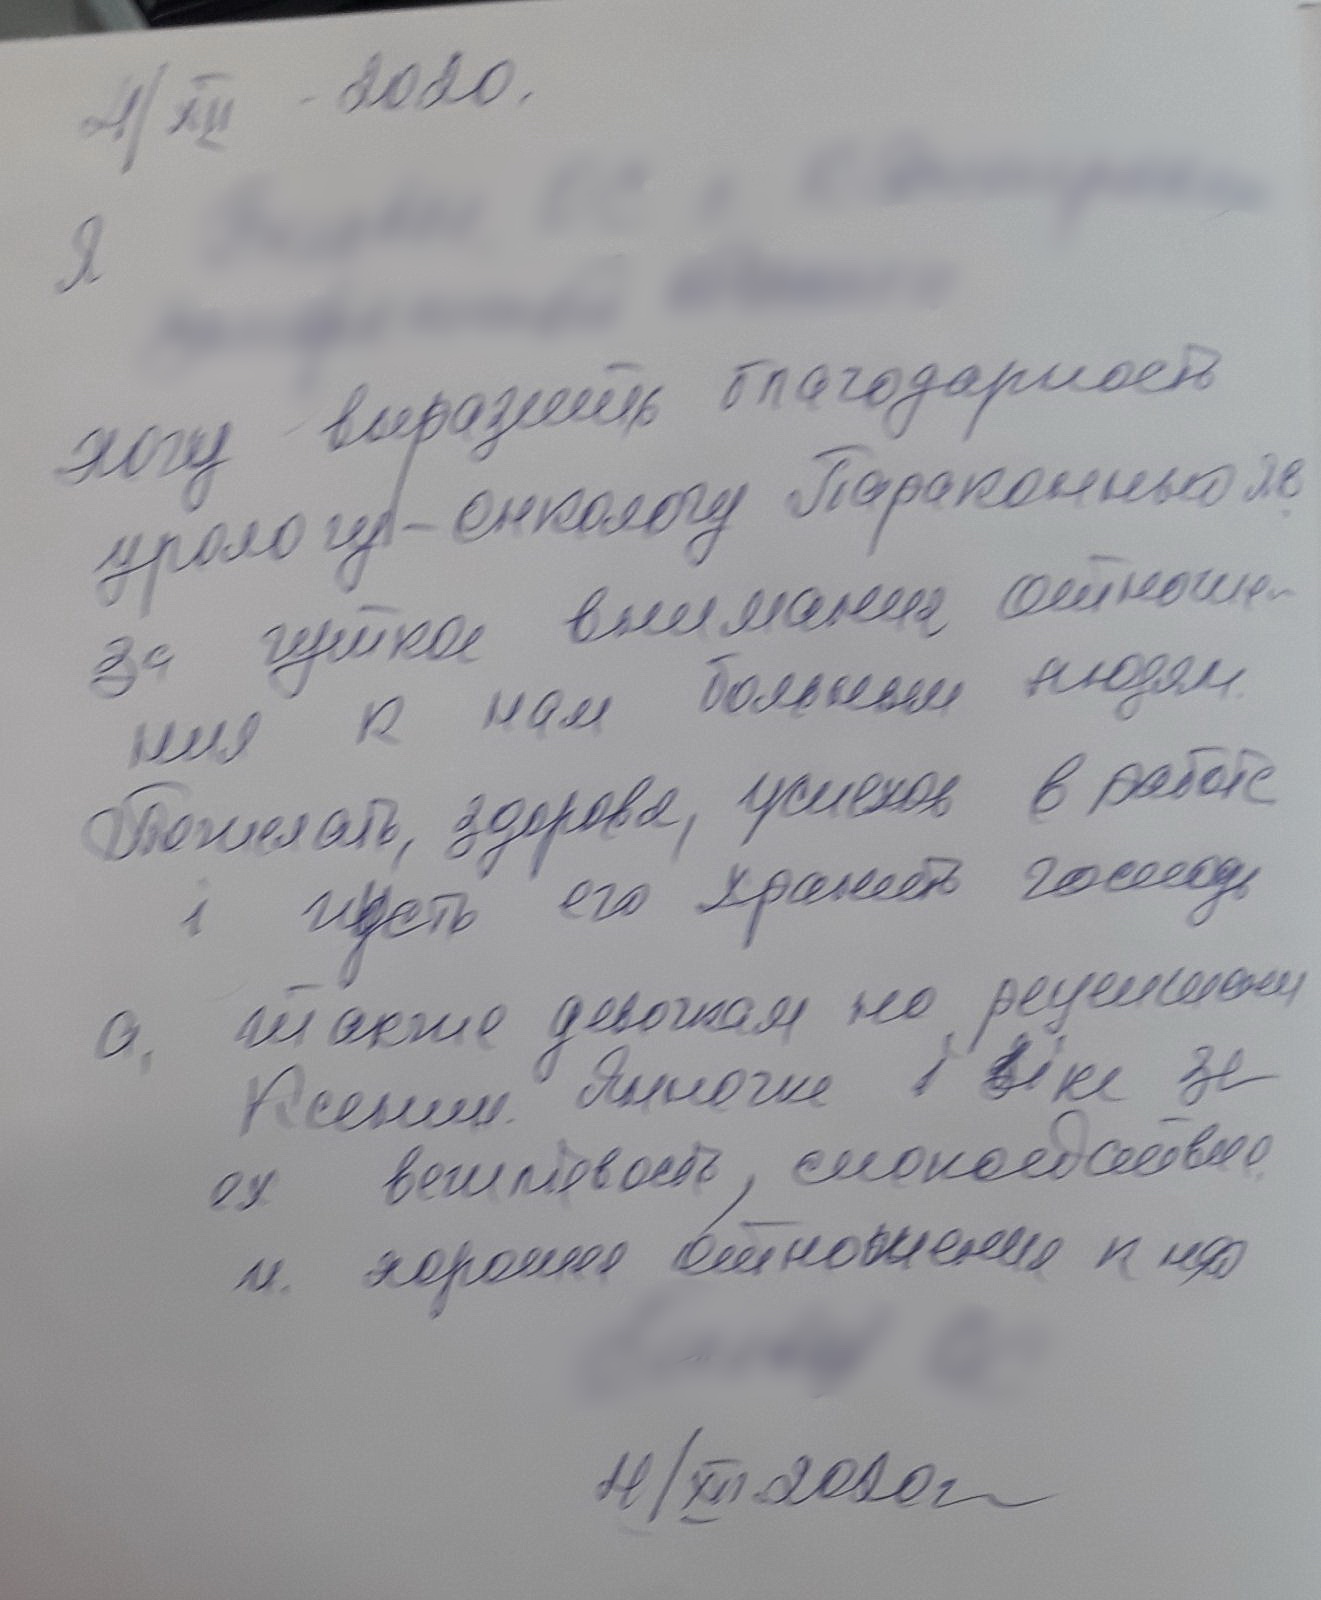 4/XII - 2020.
Я
хочу выразить благодарность
урологу-онкологу Параконнько
за чуткое внимание отноше-
ния к нам больным людям.
Пожелать, здоровя, успехов в работе
і пусть его хранить господь
а, также девочкам на рецепшен
Ксении. Янночке і Віке за
их вежлевость, спокойствие
и. хороши отношение к нам
4/XII 2020г